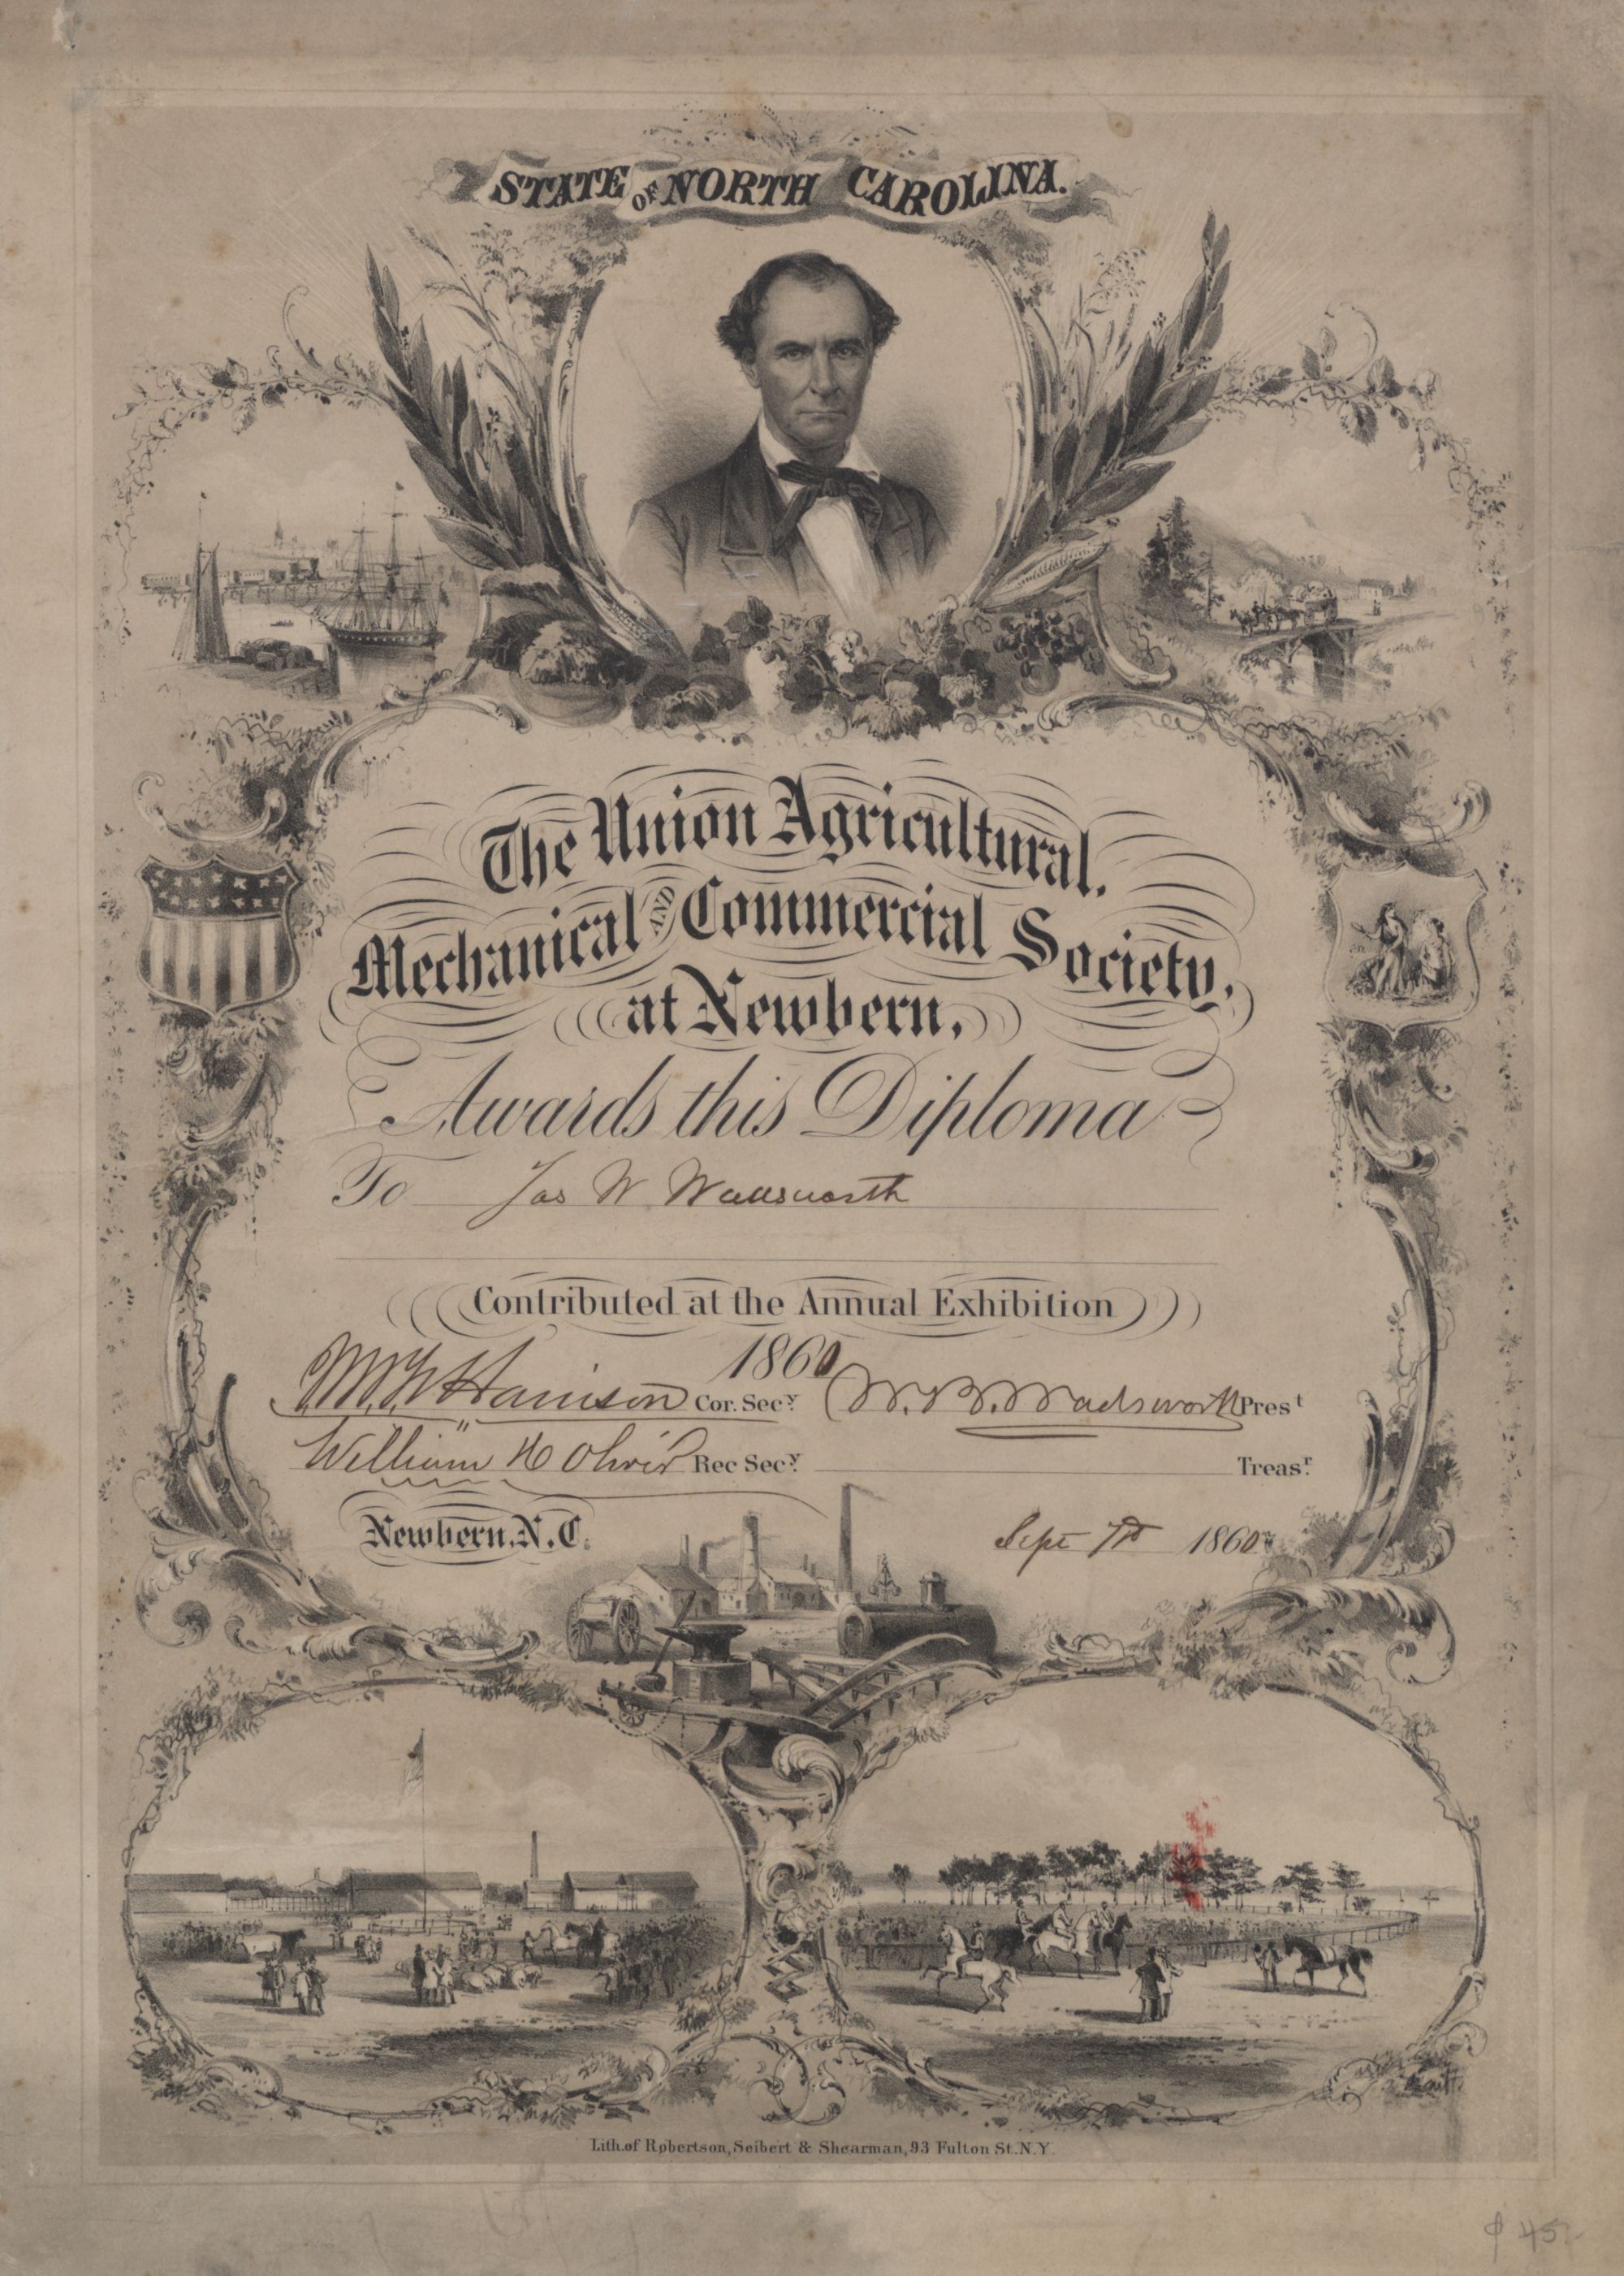 STATE OF NORTH CAROLINA.
The Union Agricultural,
Mechanical AND Commercial Society,
at Newbern,
Awards this Diploma
To Jas W. Wadsworth
Contributed at the Annual Exhibition
1860
Harrison Cor. Secy. W. B. Wadsworth Prest
William H Oliver Rec Secy. Treasr.
Newbern, N.C. Sept 7th 1860
Lith. of Robertson, Seibert & Shearman, 93 Fulton St. N.Y.